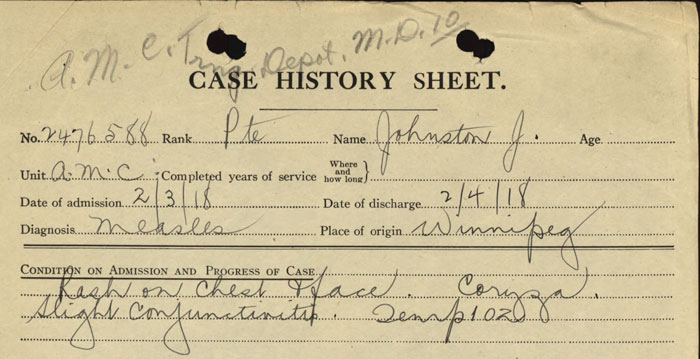 A.M.C. Trng. Depot. M.D. 10
CASE HISTORY SHEET.
No. 2476588 Rank Pte Name Johnston J. Age
Unit A.M.C. Completed years of service Where and how long}
Date of admission 2/3/18 Date of discharge 2/4/18
Diagnosis Measles Place of origin Winnipeg
CONDITION ON ADMISSION AND PROGRESS OF CASE
Rash on Chest & face. Coryza.
Slight Conjunctivitis. Temp 102